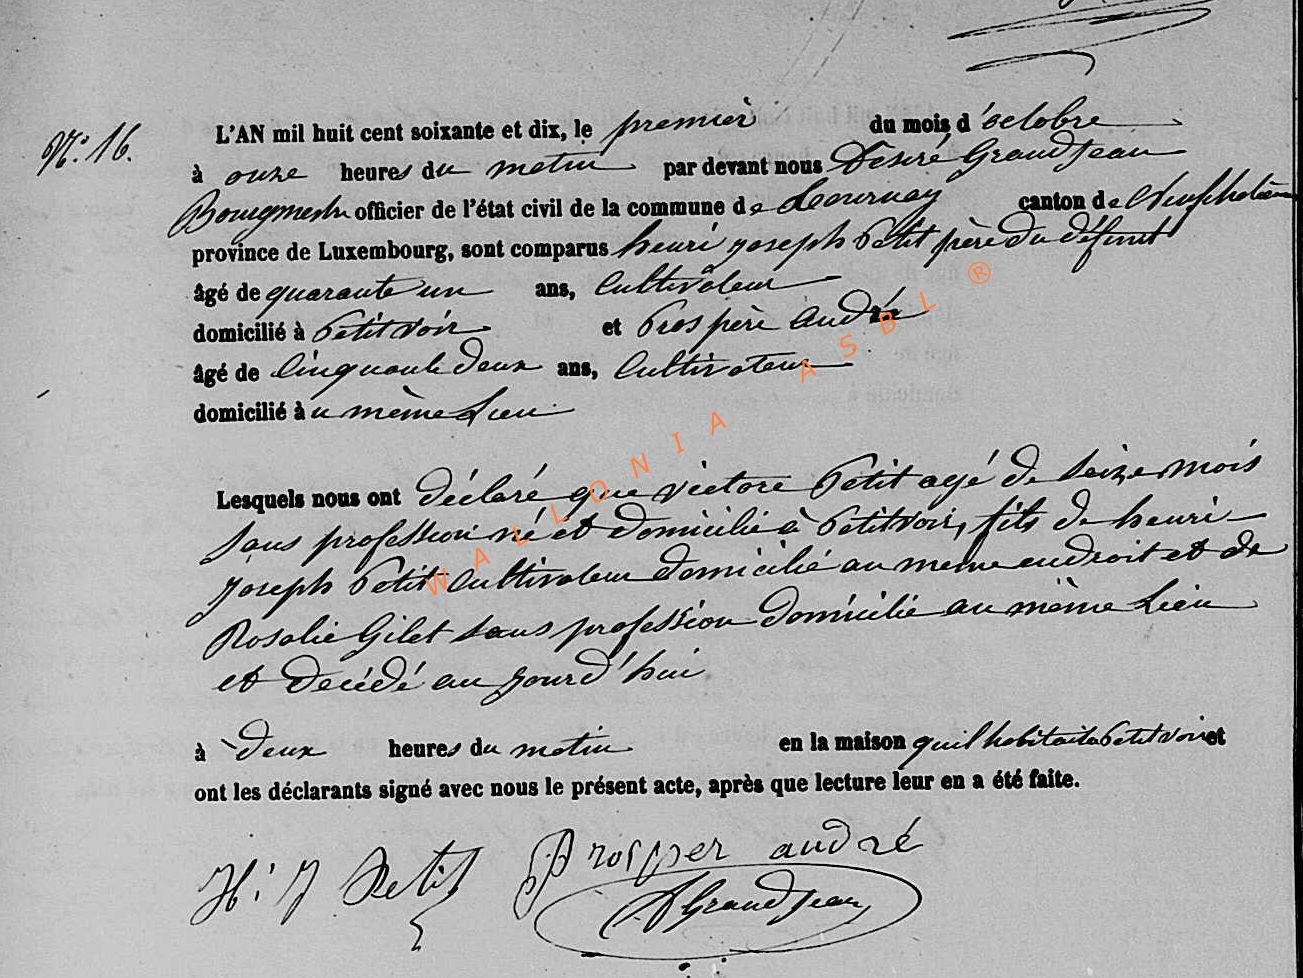 N.° 16.
L'AN mil huit cent soixante et dix, le premier du mois d'octobre
à onze heures du matin par devant nous Desiré Grandjean
Bourgmestre officier de l'état civil de la commune de Tournay canton de Neufchateau
province de Luxembourg, sont comparus henri joseph Petit père du défunt
âgé de quarante un ans, Cultivateur
domicilié à Petitvoir et Prospère andré
âgé de Cinquante Deux ans, Cultivateur
domicilié au même Lieu
Lesquels nous ont déclaré que victore Petit agé De Seize mois
Sans profession né et Domicilié à Petitvoir, fils de henri
joseph Petit Cultivateur Domicilié au meme endroit et de
Rosalie Gilet Sans profession Domicilié au même Lieu
et Decédé aujourd'hui
à Deux heures du matin en la maison quil habitait a Petitvoir et
ont les déclarants signé avec nous le présent acte, après que lecture leur en a été faite.
H. J Petit Prosper andré
D Grandjean
WALLONIA ASBL ®